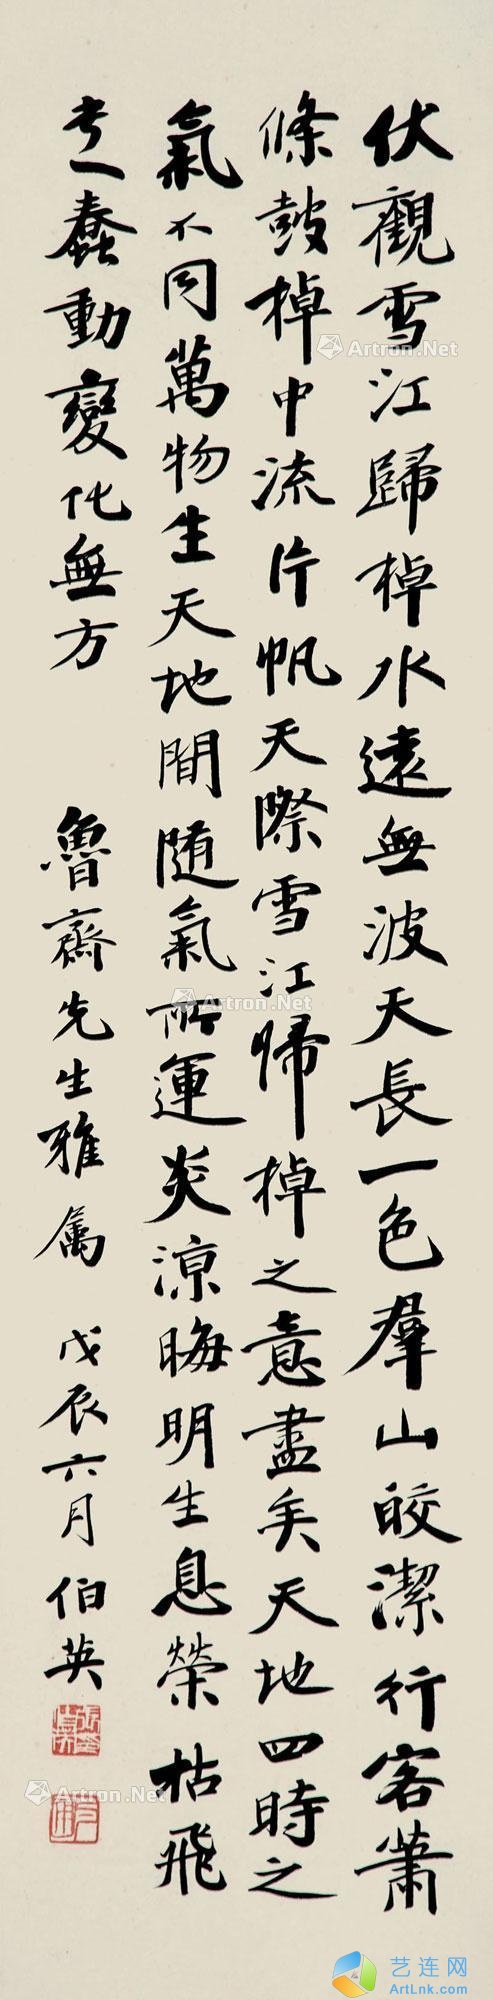 伏觀雪江歸棹水遠無波天長一色羣山皎潔行客蕭
條鼓棹中流片帆天際雪江帰棹之意盡矣天地四時之
氣不同萬物生天地間随氣所運炎凉晦明生息榮枯飛
走蠢動變化無方
魯齋先生雅属 戊辰六月 伯英
Artron.Net
Artron.Net
Artron.Net
Artron.Net
Artron.Net
Artron.Net
艺连网
ArtLnk.com